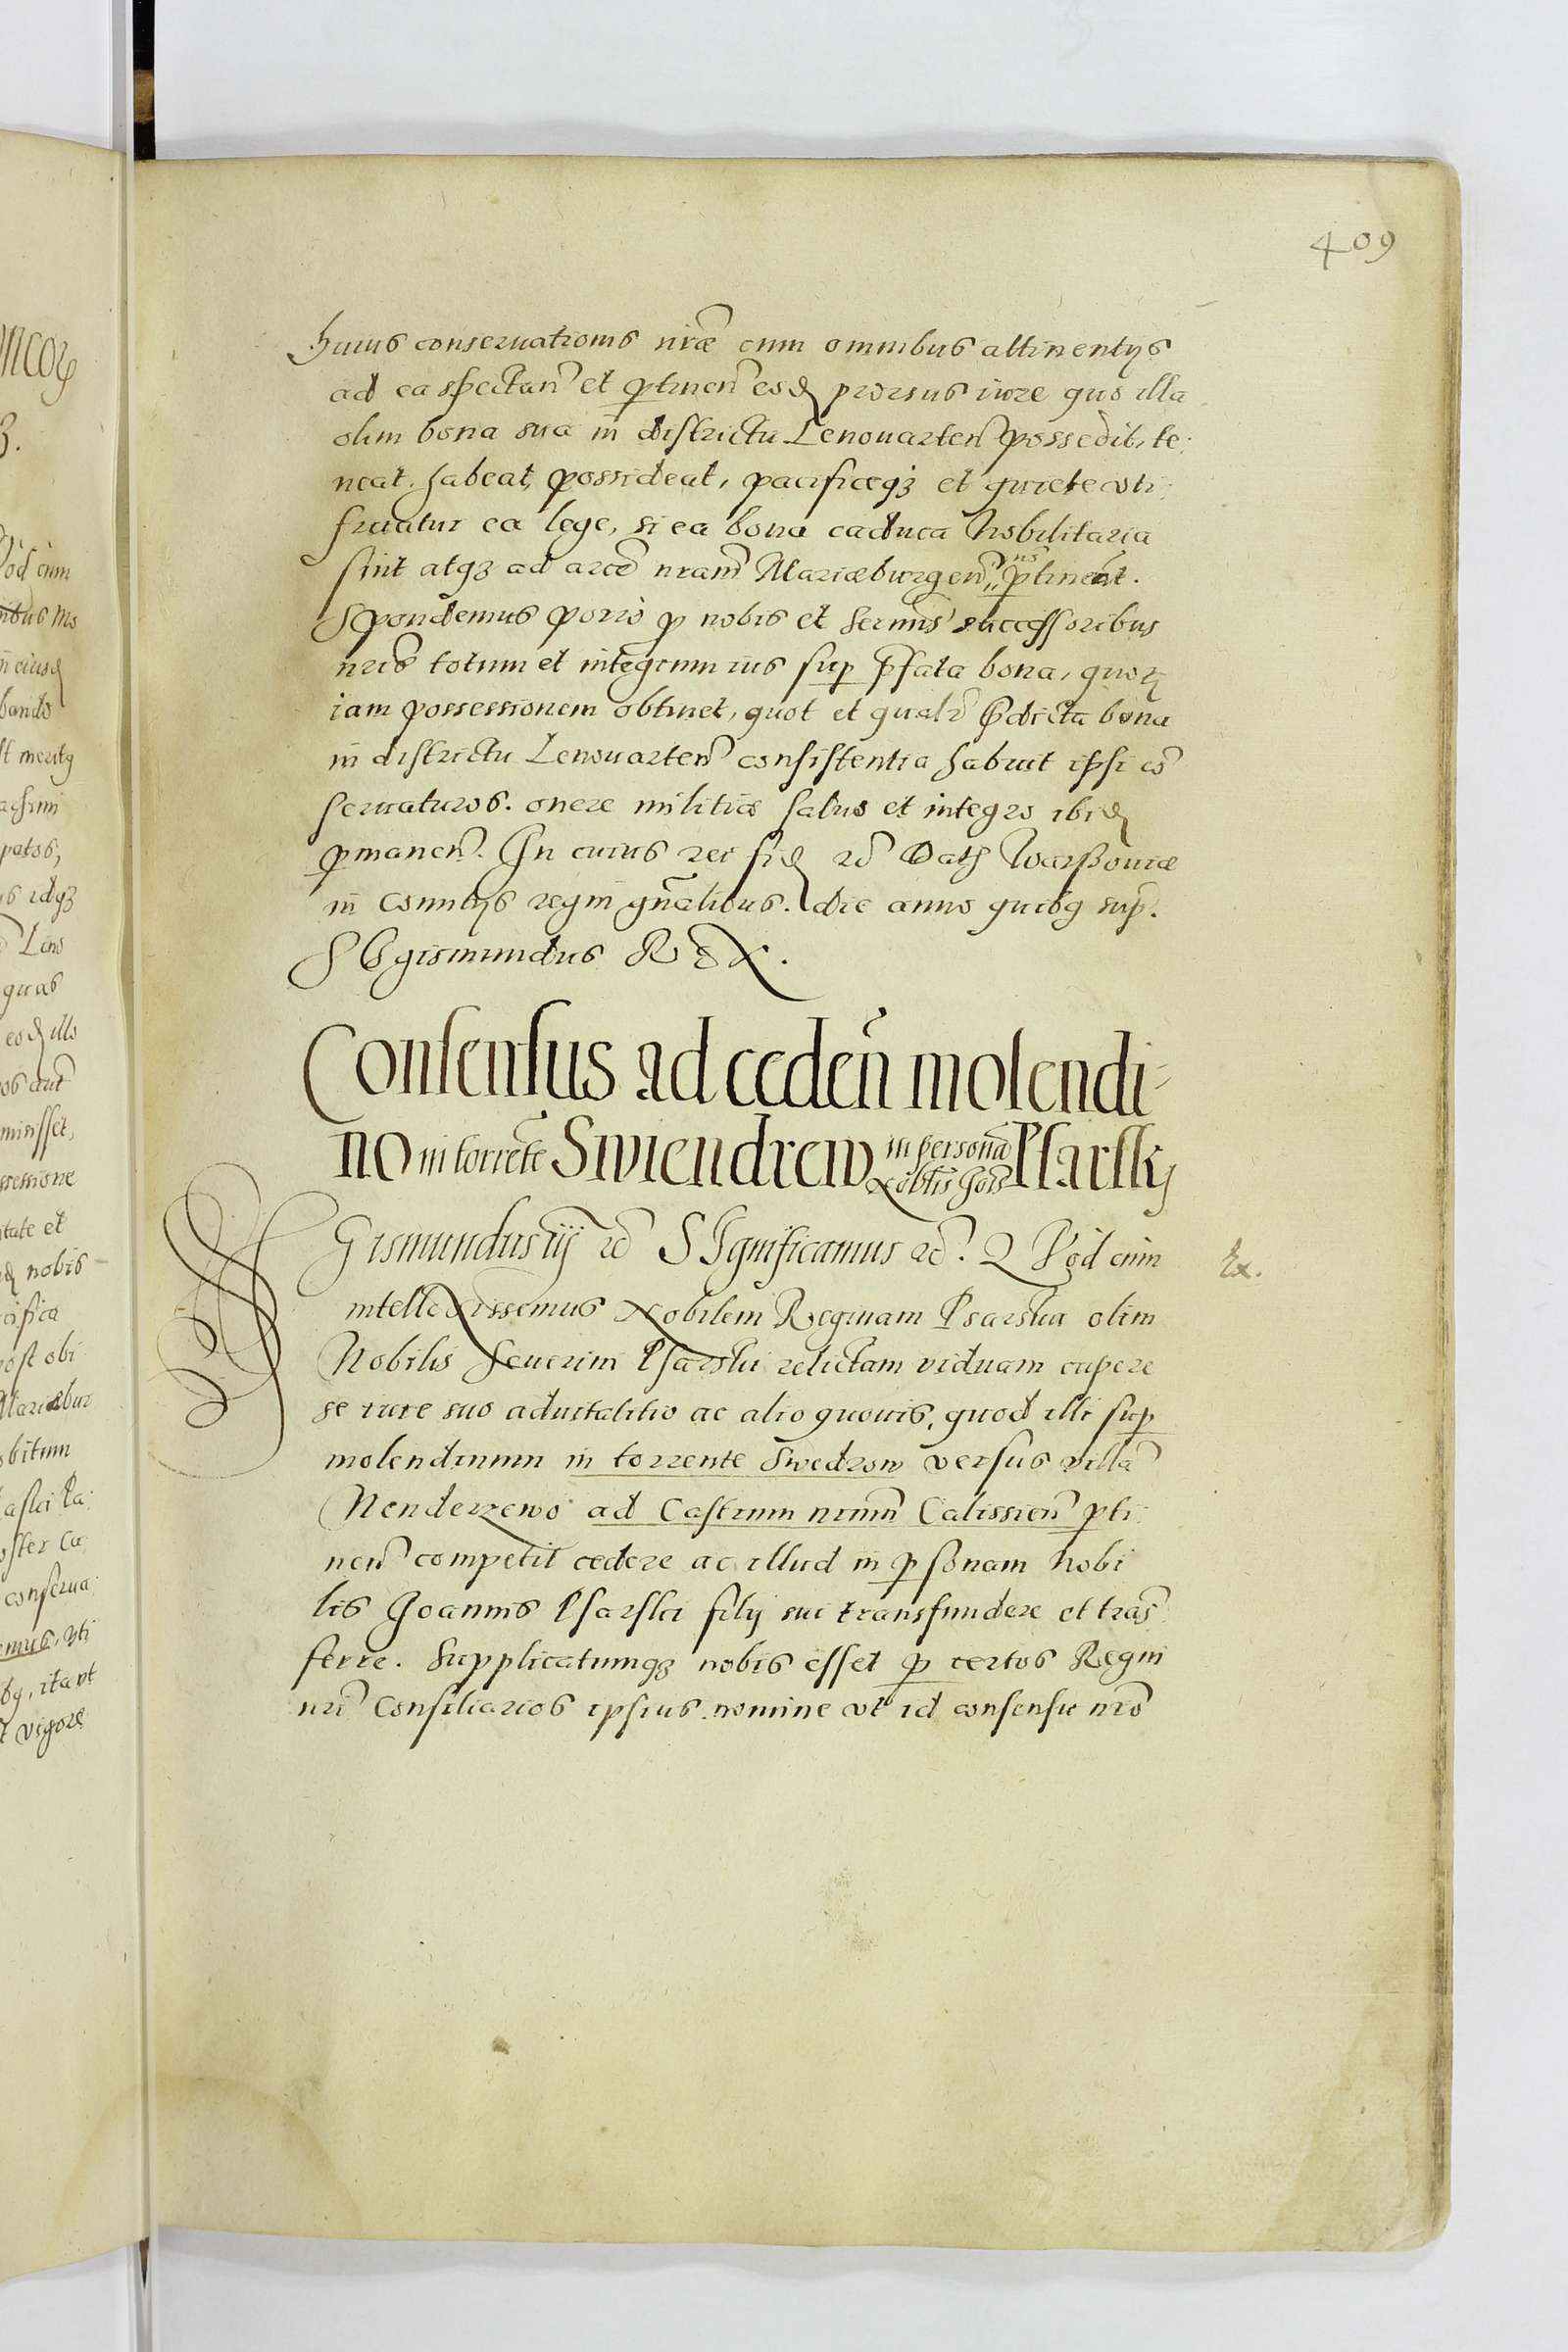 409
huius conservationis nrae cum omnibus attinentijs
ad ea spectan et ptinen eod prorsus iure quo illa
olim bona sua in districtu Lenouarten possedit, te-
neat, habeat, possideat, pacificeqz et quiete vti
fruatur ea lege, si ea bona caduca Nobilitaria
sint atqz ad arce nram Mariaeburgen ns ptineat.
Spondemus porro p nobis et sermis successoribus
nris totum et integrum ius sup pfata bona, quor
iam possessionem obtinet, quot et qualr pdicta bona
in districtu Lenouarten consistentia habuit ipsi co
seruaturos. onere militiae saluo et integro ibid
pmanen. In cuius rei fid etc Dat Warssouiae
in comitijs regni gnalibus. die anno quibq sup.
SIgismundus REX.
Consensus ad ceden molendi-
no in torrete Swiendrew in persona Noblis Jois Psarskj
GIsmundus iij etc SIgnificamus etc. QVod cum
Ex.
intellexissemus Nobilem Reginam Psarska olim
Nobilis Seuerini Psarski relictam viduam cupere
se iure suo aduitalitio ac alio quouis, quod illi sup
molendinum in torrente Swedrow versus villa
Nenderzewo ad Castrum nrum Calissien pti
nen competit cedere ac illud in psonam Nobi
lis Joannis Psarski filij sui transfundere et tras
ferre. Supplicatumqz nobis esset p certos Regni
nri Consiliarios ipsius nomine vt id consensu nro